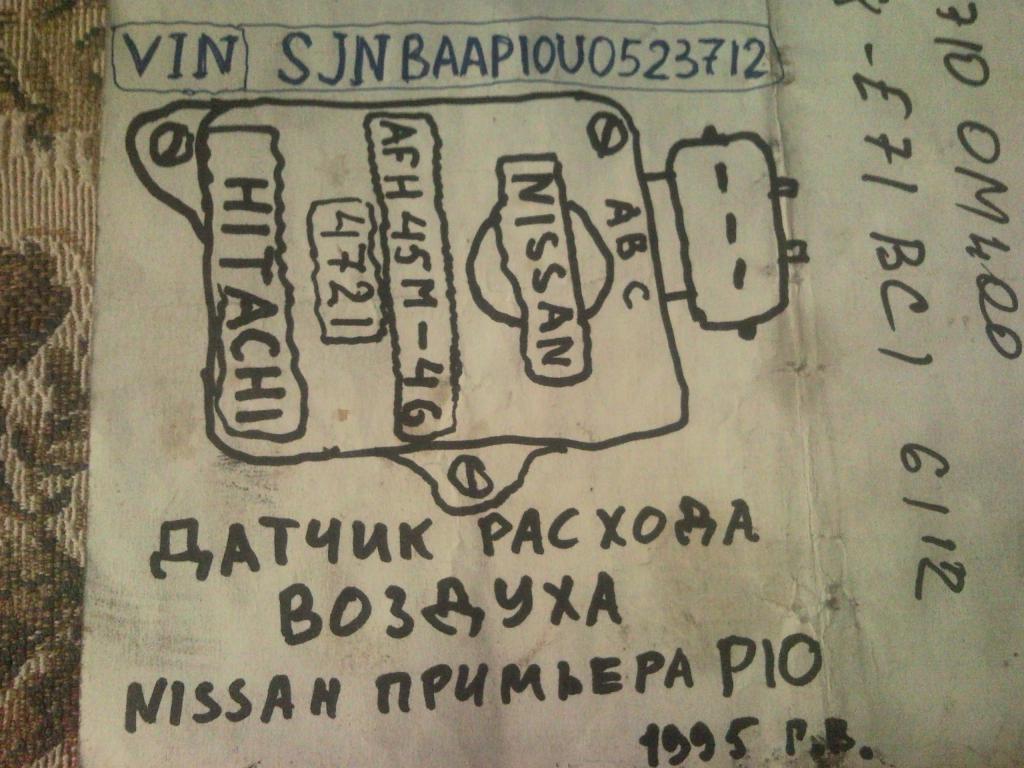 VIN SJNBAAP10U0523712
HITACHI
4721
AFH45M-46
NISSAN
A B C
ДАТЧИК РАСХОДА
ВОЗДУХА
NISSAN ПРИМЬЕРА P10
1995 г.в.
710 0M400
-E71 BC1 6112